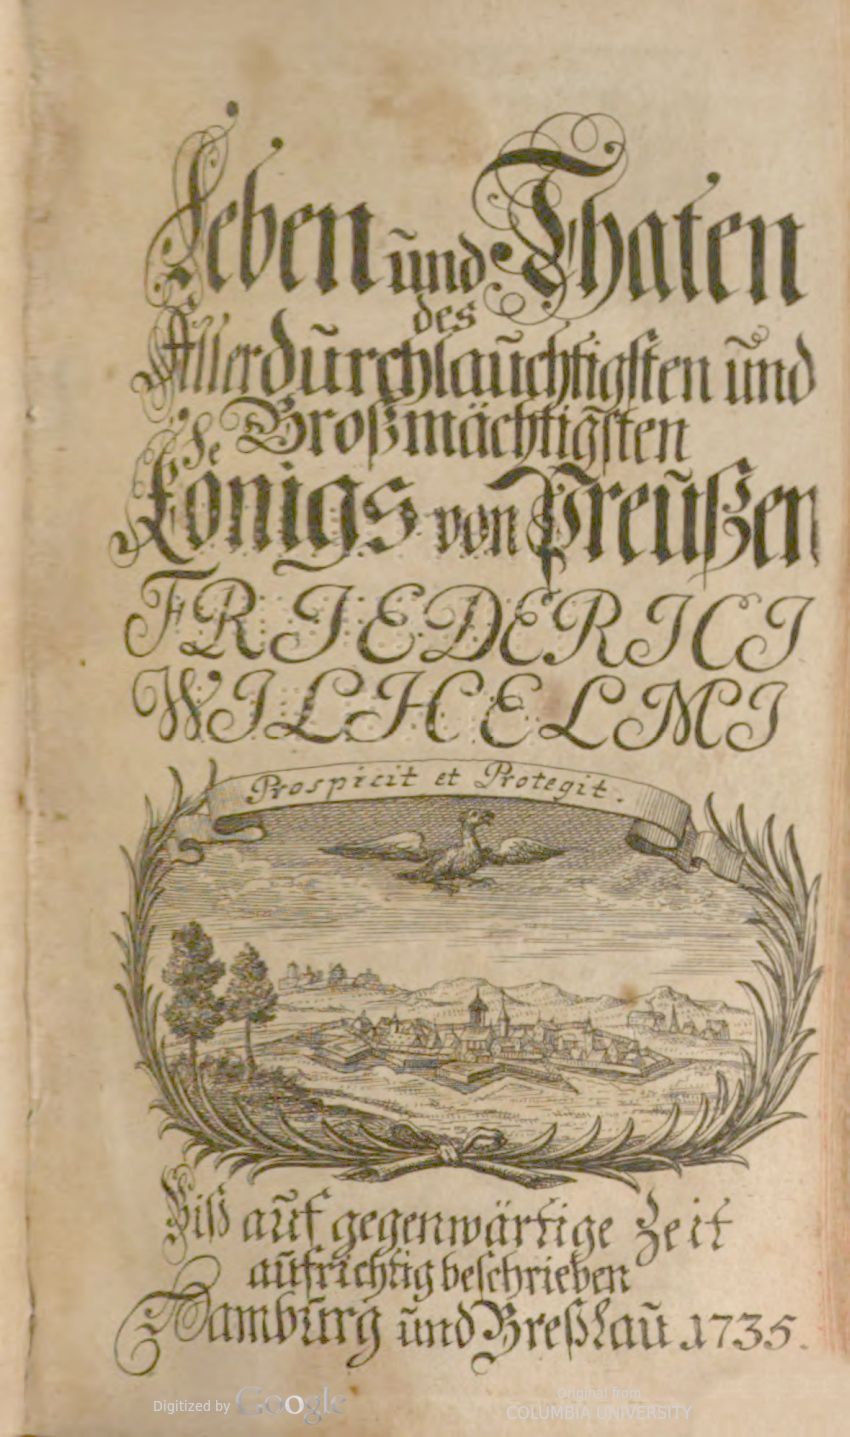 Leben und Thaten
des
Allerdurchlauchtigsten und
Großmächtigsten
Königs von Preußen
FRIEDERICI
WILHELMI
Prospicit et Protegit.
Biß auf gegenwärtige Zeit
aufrichtig beschrieben
Hamburg und Breßlau 1735.
Digitized by Google
Original from
COLUMBIA UNIVERSITY